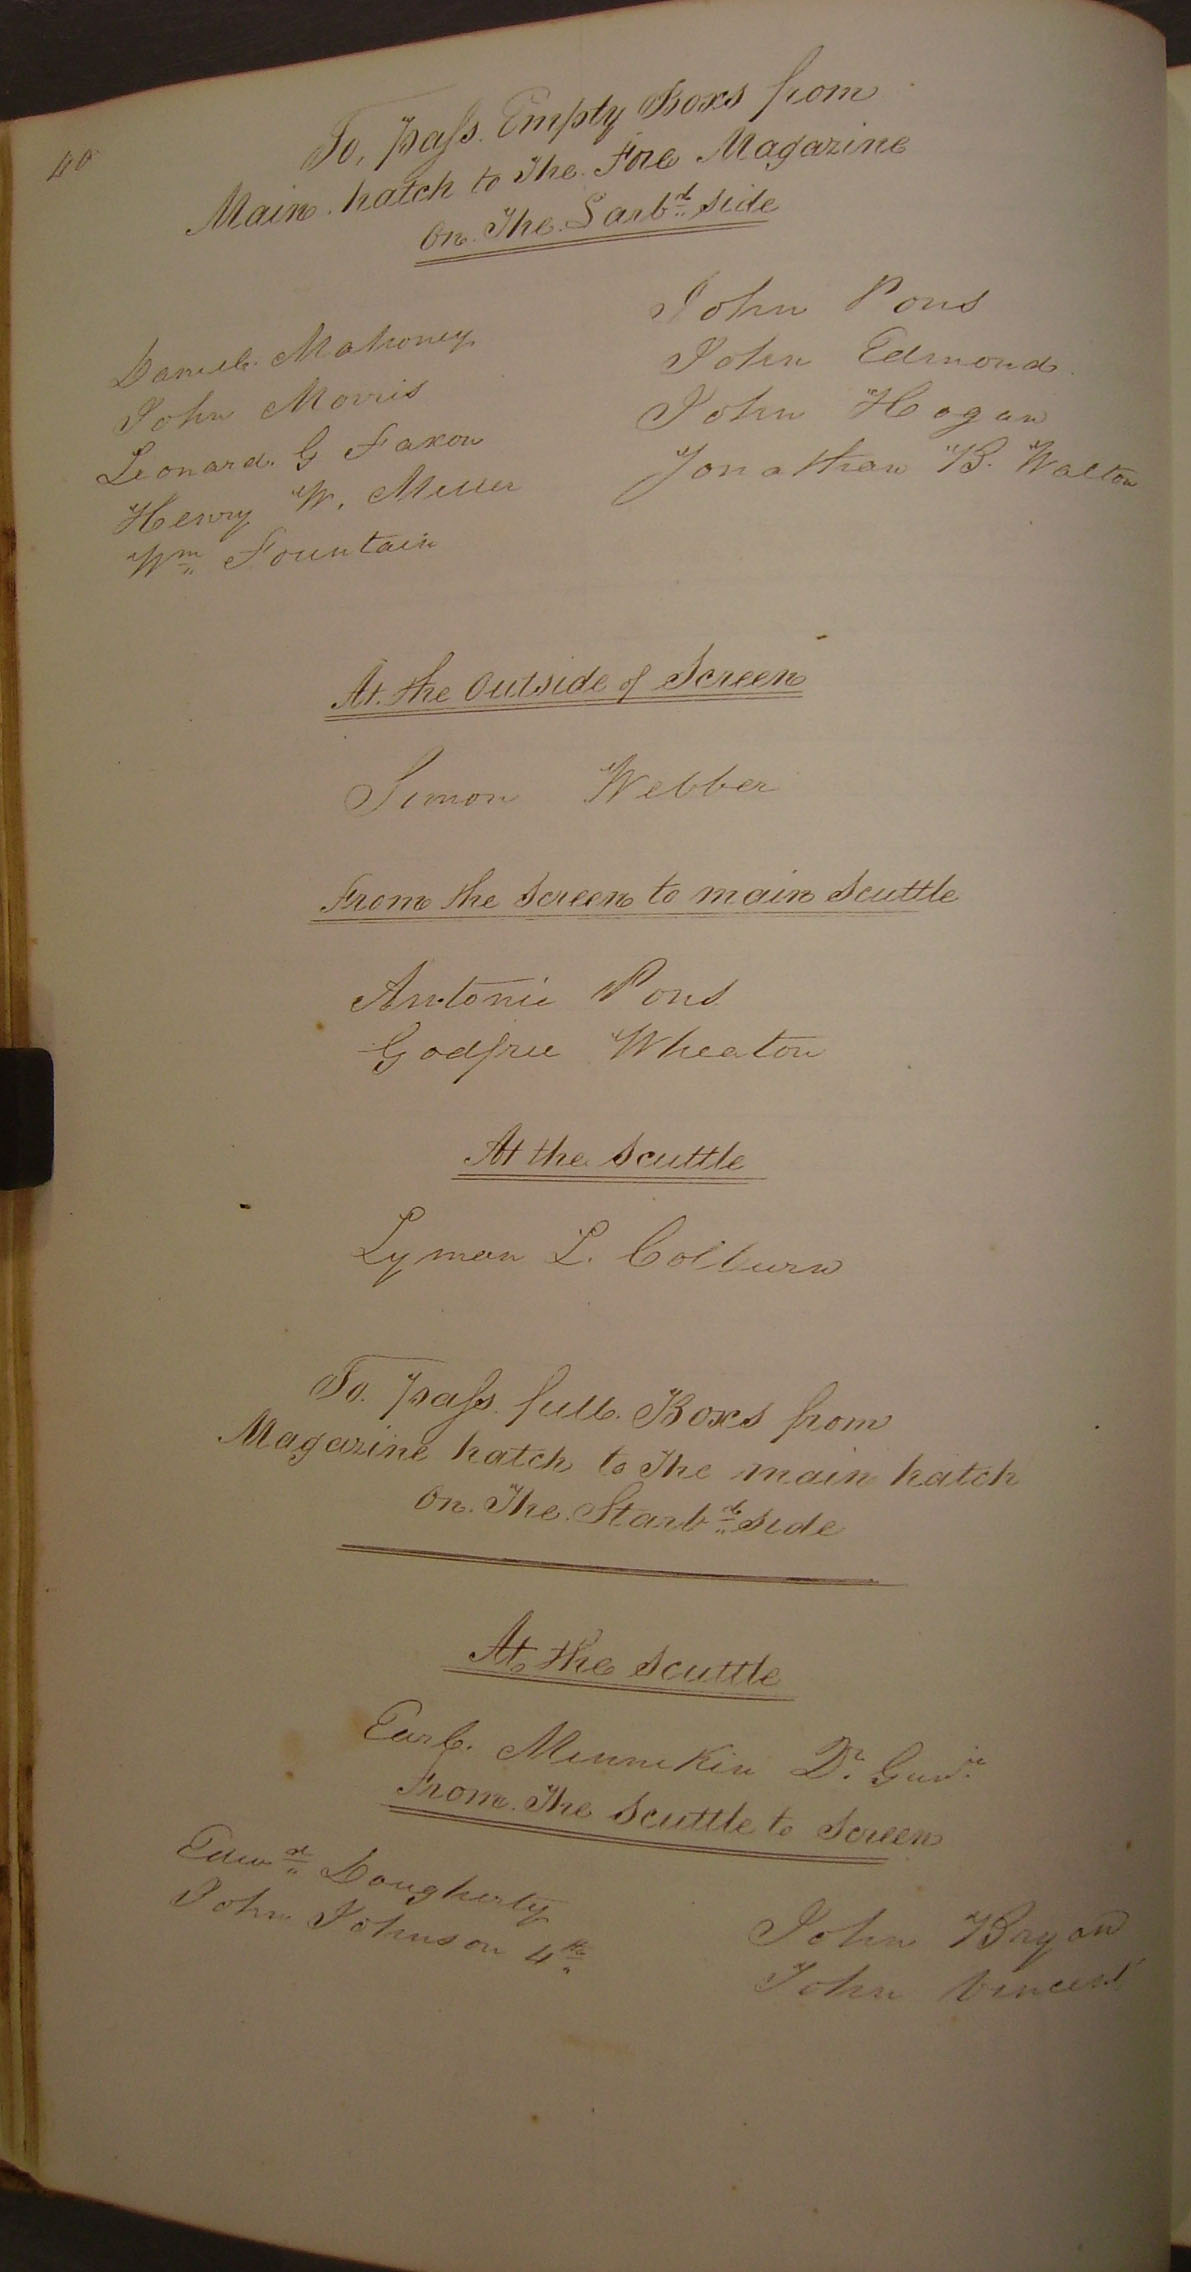 40
To, pass. Empty Boxs from
Main. hatch to The. Fore Magazine
On. The. Larbd side
Daniel. Mahoney
John Morris
Leonard. G Faxon
Henry W. Miller
Wm Fountain
John Pons
John Edmond
John Hogan
Jonathan B. Walton
At. the Outside of Screen
Simon Webber
From the Screen to main Scuttle
Antonie Pons
Godfree Wheaton
At the Scuttle
Lyman L. Colburn
To. pass. full. Boxs from
Magazine hatch to The main hatch
On. The. Starbd side
At the Scuttle
Earl. Minnikin
From. The Scuttle to Screen
Edwd Dougherty
John Johnson 4th
John Bryan
John Vincent